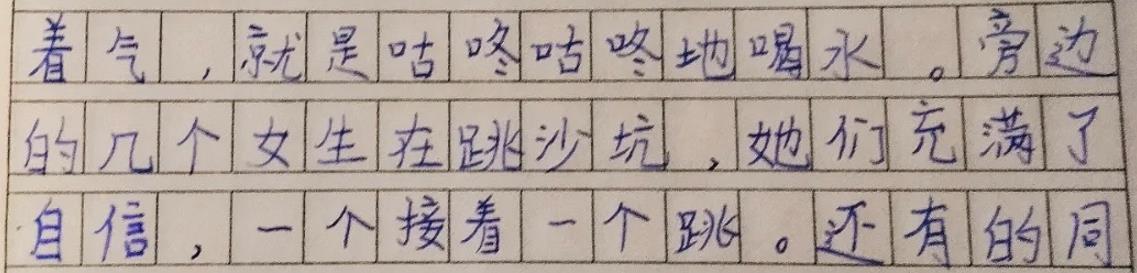 着气,就是咕咚咕咚地喝水。旁边
的几个女生在跳沙坑,她们充满了
自信,一个接着一个跳。还有的同